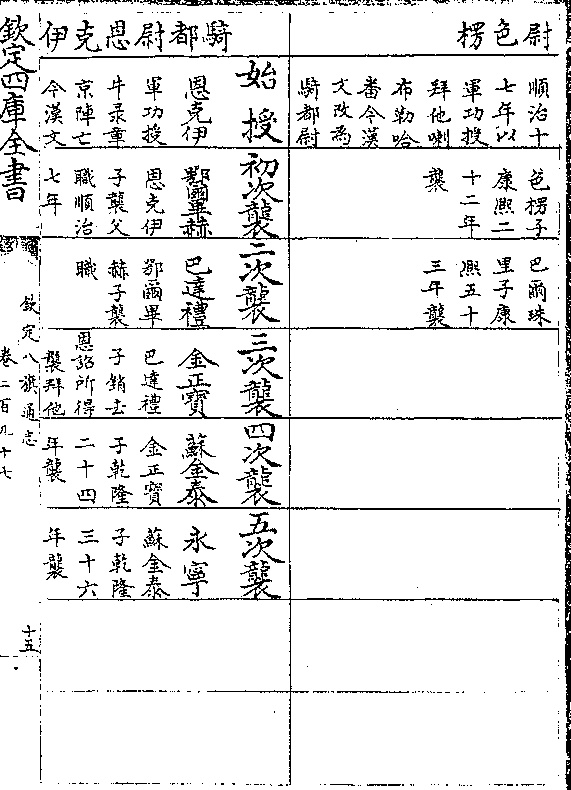 尉色楞
順治十
七年以
軍功授
拜他喇
布勒哈
番今漢
文改為
騎都尉
色楞子
康熙二
十二年
襲
巴爾珠
里子康
熙五十
三年襲
騎都尉恩克伊
始授
恩克伊
軍功授
牛录章
京陣亡
今漢文
初次襲
鄂爾畢赫
恩克伊
子襲父
職順治
七年
二次襲
巴達禮
鄂爾畢
赫子襲
職
三次襲
金正寶
巴達禮
子銷去
恩詔所得
襲拜他
四次襲
蘇金泰
金正寶
子乾隆
二十四
年襲
五次襲
永寧
蘇金泰
子乾隆
三十六
年襲
欽定四庫全書
欽定八旗通志
卷二百九十七
十五